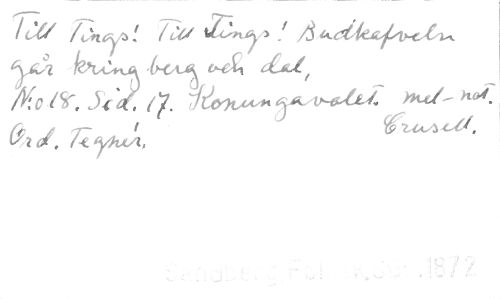 Till Tings! Till Tings! Budkafveln
går kring berg och dal,
N:o 18. Sid. 17. Konungavalet. mel-not.
Ord. Tegnér. Crusell.
Sandberg, 1872